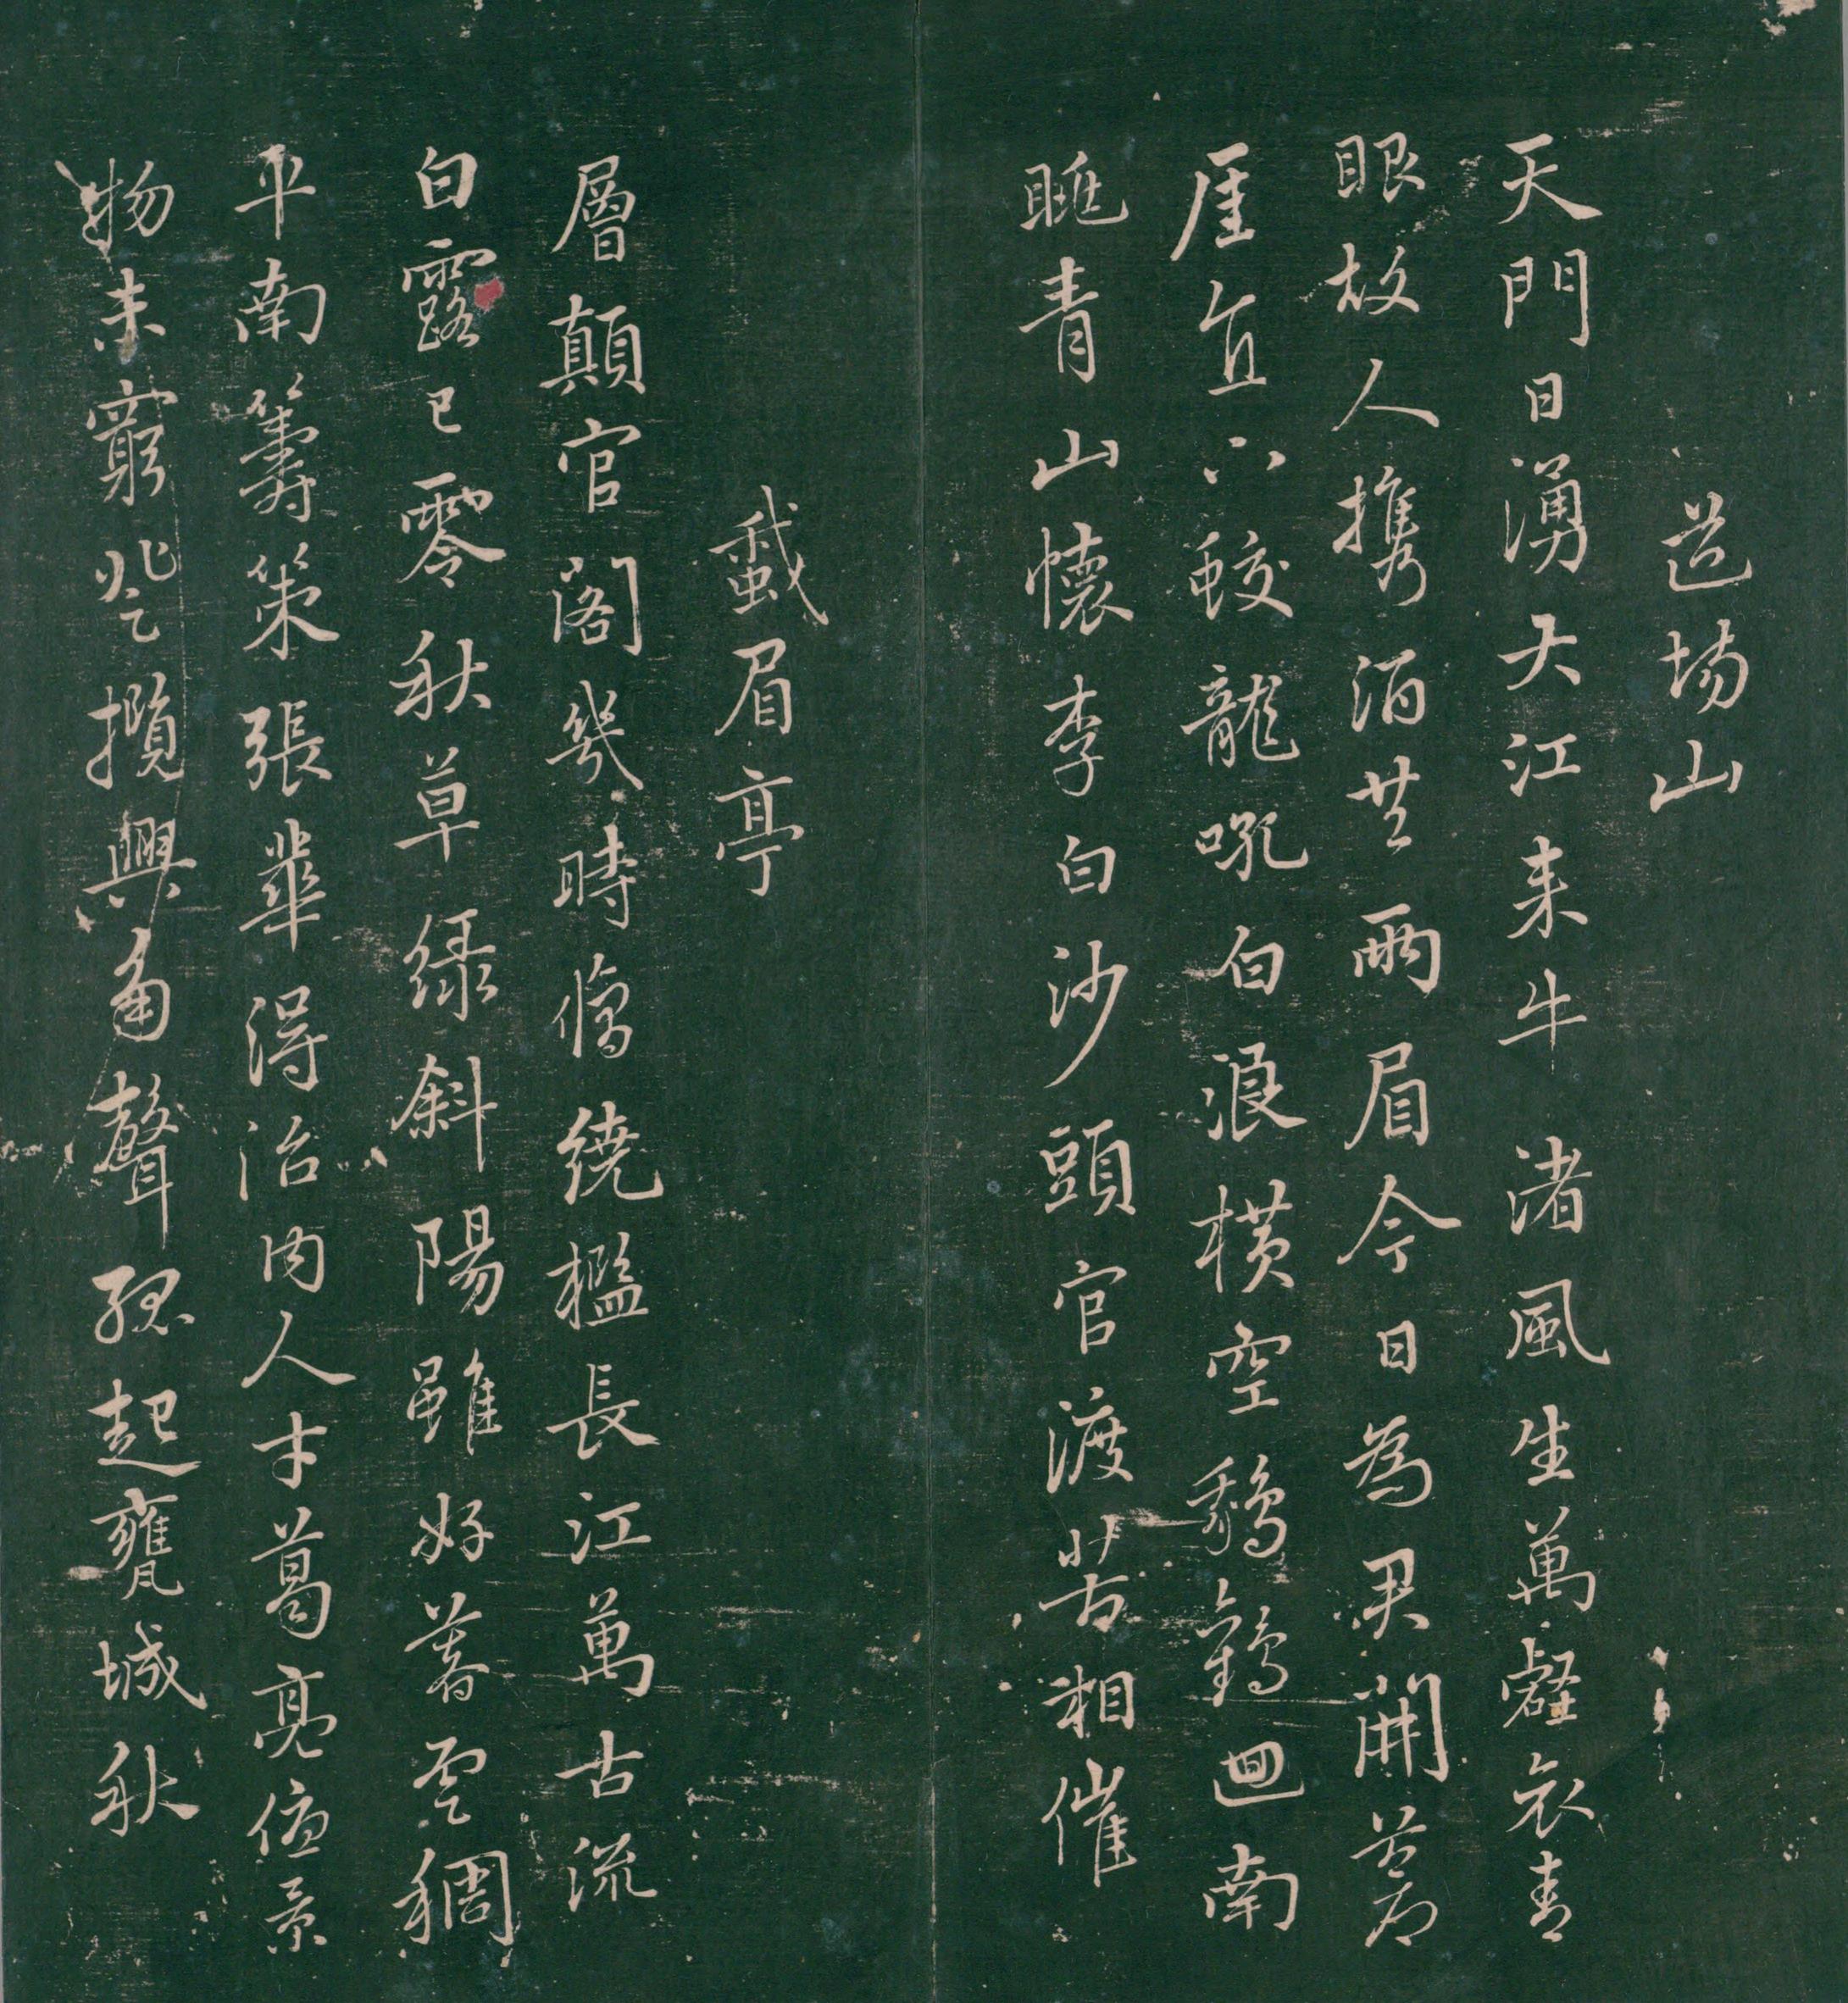 道場山
天門日湧大江来牛渚風生萬壑哀青
眼故人携酒共兩眉今日為君開蒼
厓直下蛟龍吼白浪橫空鵝鸛迴南
眺青山懷李白沙頭官渡苦相催
蛾眉亭
層顛官閣幾時脩繞檻長江萬古流
白露已零秋草緑斜陽雖好暮雲稠
平南籌策張華得治内人才葛亮優景
物未窮登攬興角聲孤起甕城秋